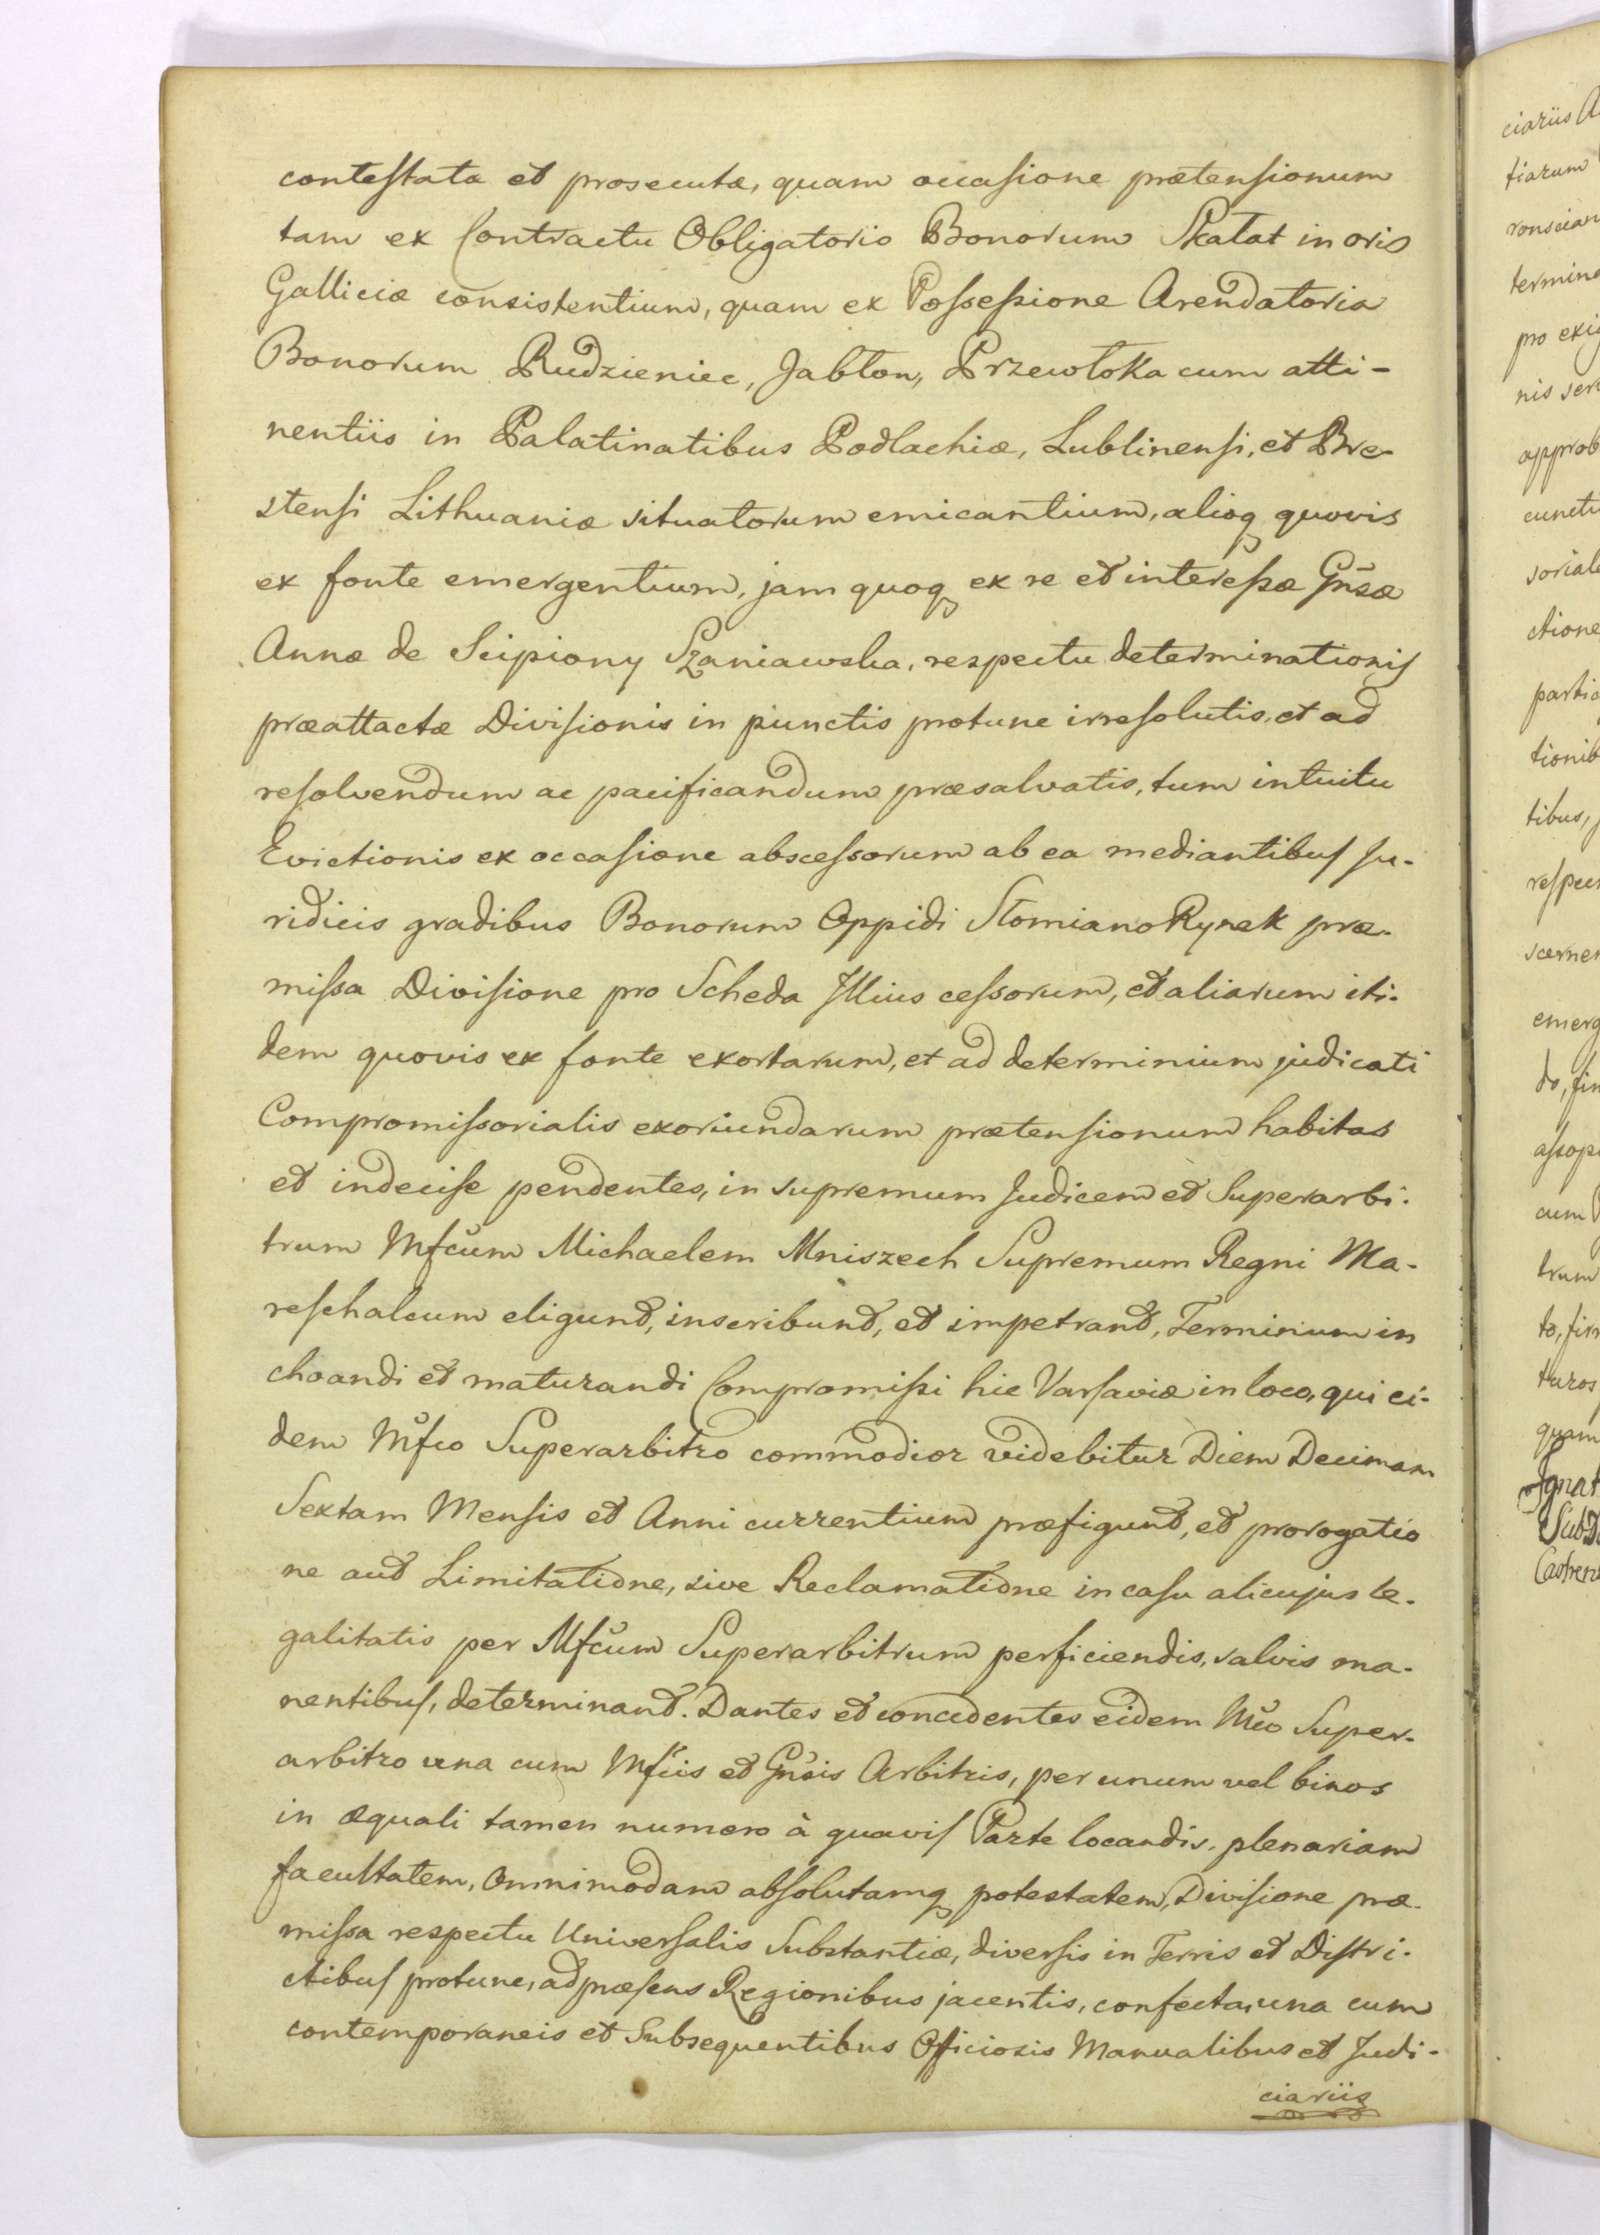 contestata et prosecuta, quam occasione prætensionum
tam ex Contractu Obligatorio Bonorum Skałat in oris
Galliciæ consistentium, quam ex Possessione Arendatoria
Bonorum Rudzieniec, Jabłon, Przewłoka cum atti-
nentiis in Palatinatibus Podlachiæ, Lublinensi, et Bre-
stensi Lithuaniæ situatorum emicantium, alioq quovis
ex fonte emergentium, jam quoq ex re et interesse Gnsæ
Annæ de Scipiony Szaniawska, respectu determinationis
præattactæ Divisionis in punctis protunc irresolutis, et ad
resolvendum ac pacificandum præsalvatis, tum intuitu
Evictionis ex occasione abscessorum ab ea mediantibus Ju-
ridicis gradibus Bonorum Oppidi Słomiano Rynek præ-
missa Divisione pro Scheda Illius cessorum, et aliarum iti-
dem quovis ex fonte exortarum, et ad determinium judicati
Compromissorialis exoriundarum prætensionum habitas
et indecise pendentes, in supremum Judicem et Superarbi-
trum Mfcum Michaelem Mniszech Supremum Regni Ma-
reschalcum eligund, inscribund, et impetrand, Terminum in
choandi et maturandi Compromissi hic Varsaviæ in loco, qui ei-
dem Mfco Superarbitro commodior videbitur Diem Decimam
Sextam Mensis et Anni currentium præfigund, et prorogatio
ne aut Limitatione, sive Reclamatione in casu alicujus le-
galitatis per Mfcum Superarbitrum perficiendis, salvis ma-
nentibus, determinand. Dantes et concedentes eidem Mco Super-
arbitro una cum Mfcis et Gnsis Arbitris, per unum vel binos
in æquali tamen numero à quavis Parte locandis, plenariam
facultatem, omnimodam absolutamq potestatem, Divisione præ-
missa respectu Universalis Substantiæ, diversis in Terris et Distri-
ctibus protunc, ad præsens Regionibus jacentis, confecta, una cum
contemporaneis et Subsequentibus Officiosis Manualibus et Judi-
ciariis
ciariis
tiarum
termin
pro exi
nis ser
approb
cunctu
sorial
ctione
partic
tionib
tibus,
respec
scerne
emerg
do, fin
assopi
cum
trum
to, fir
turos
quam
Ignat
SubD
Castren